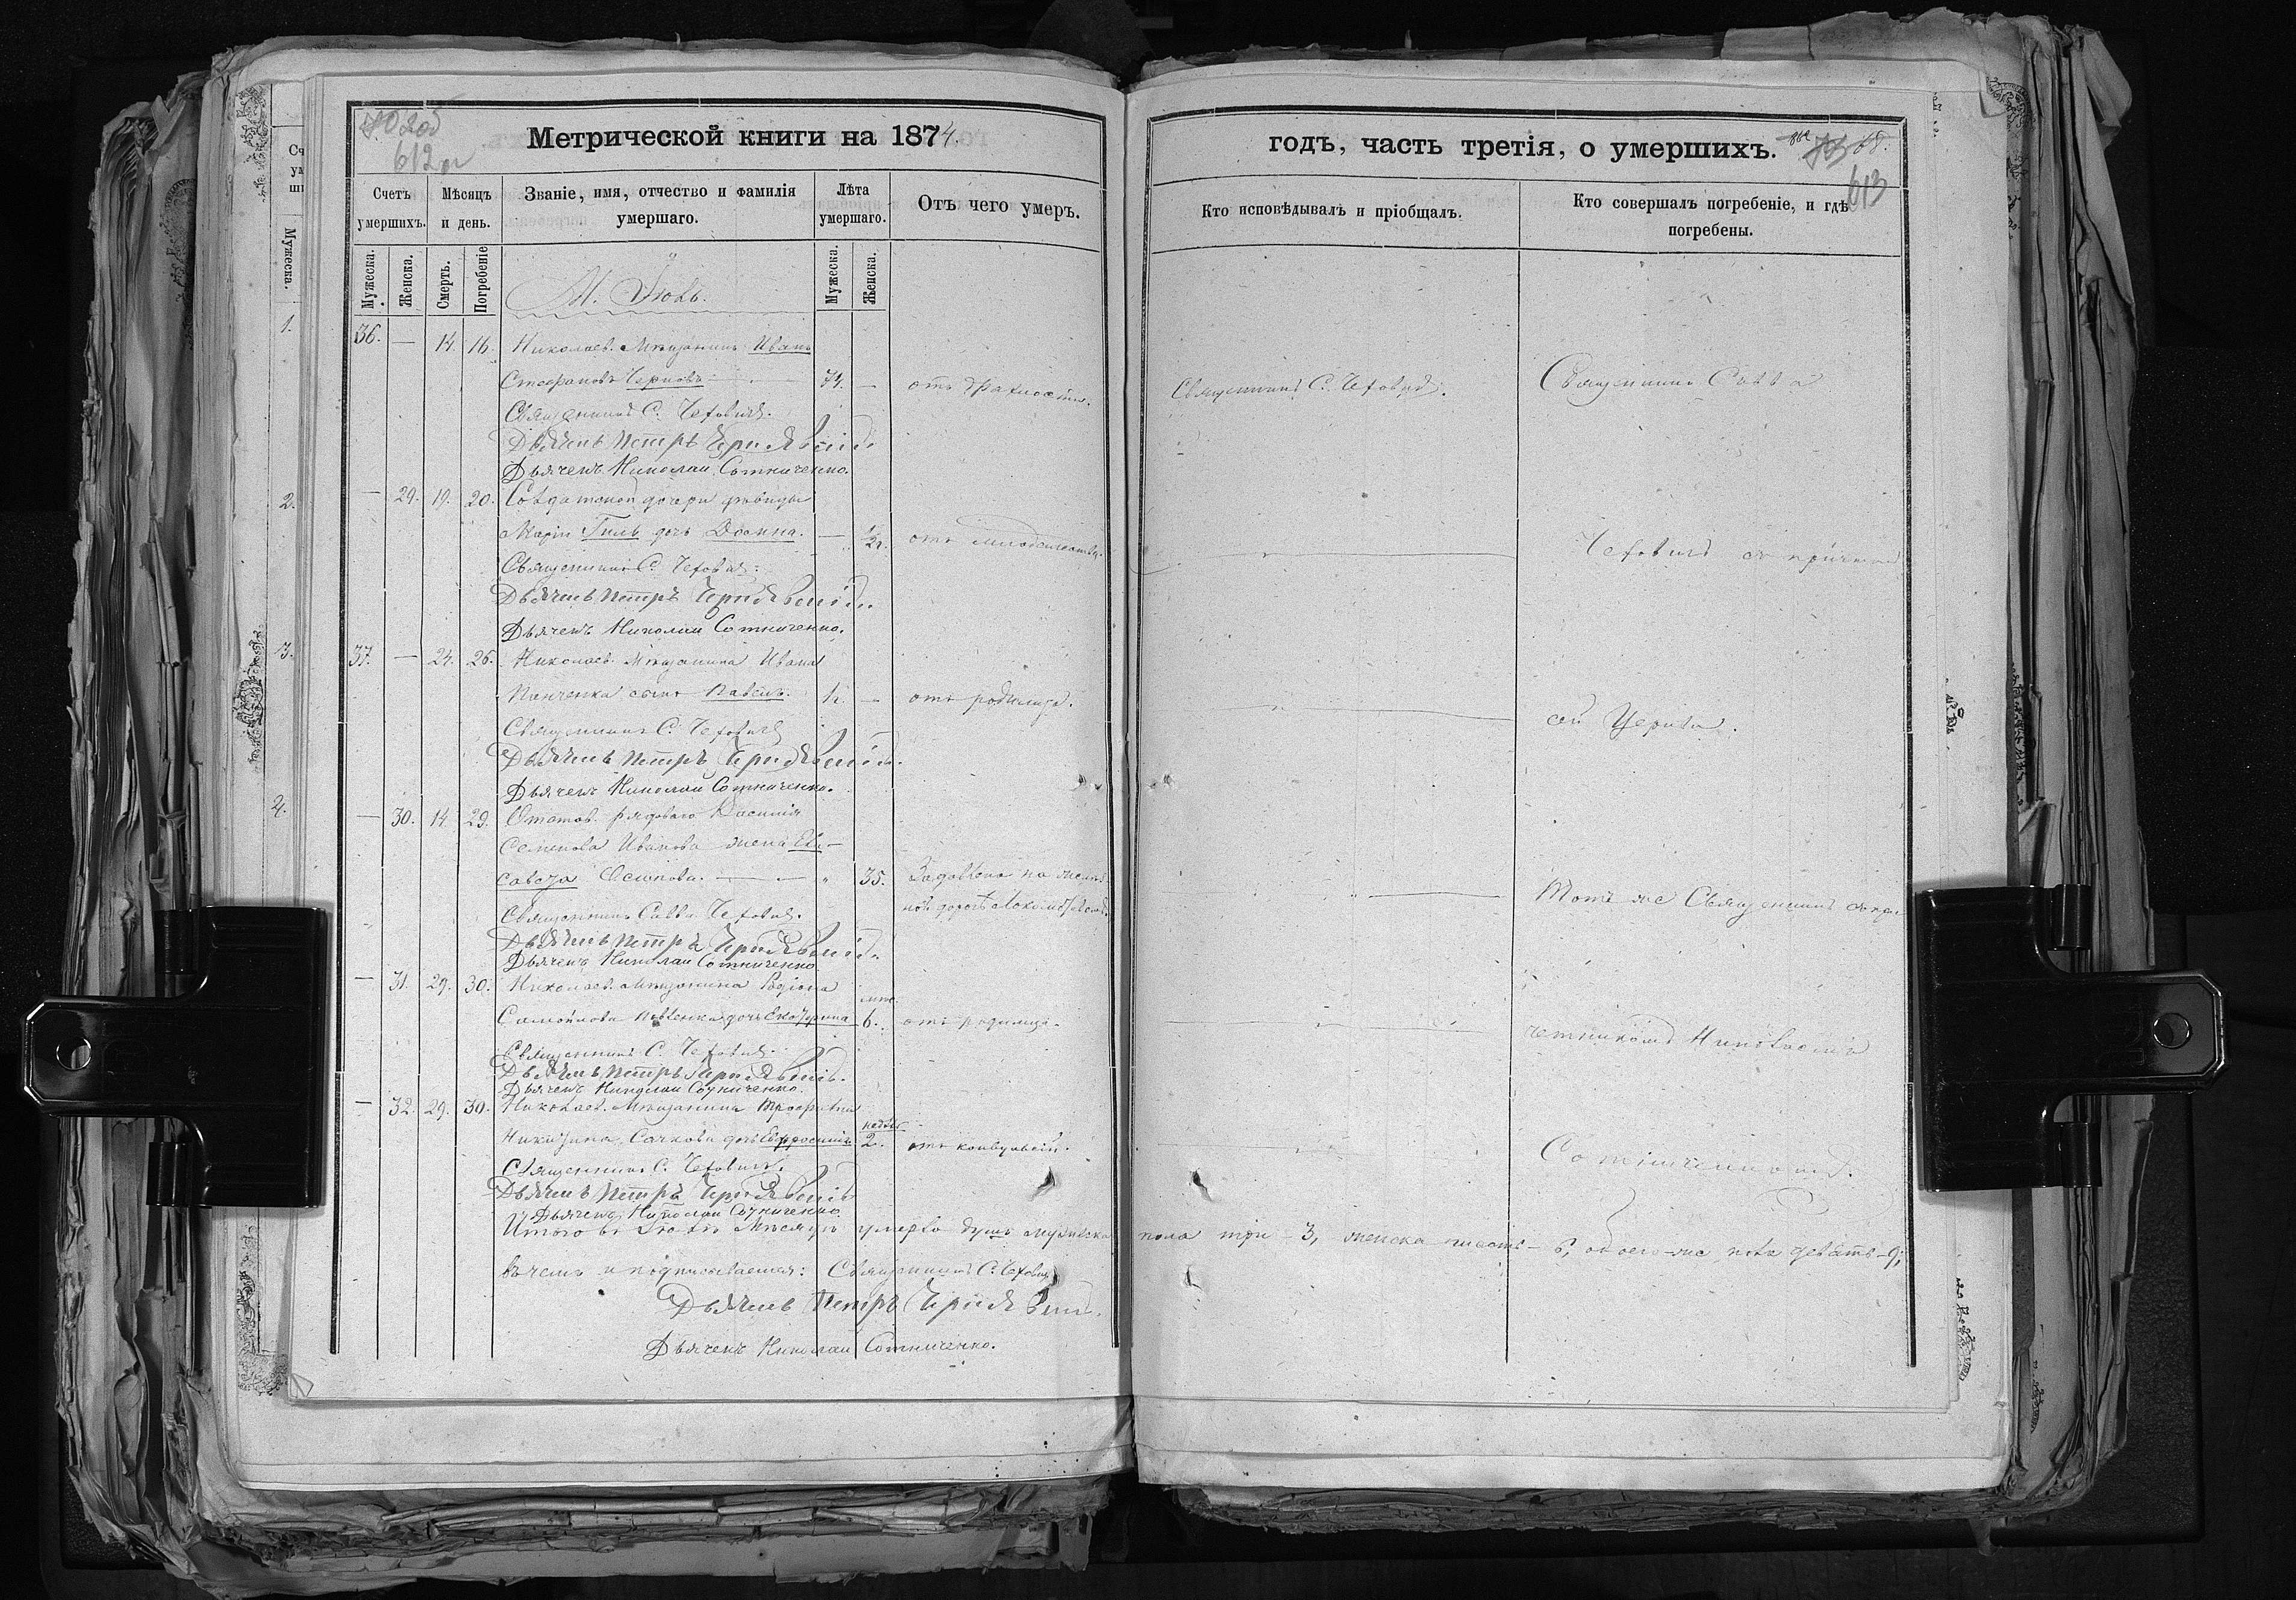 612
Метрической книги на 1874
Счетъ умершихъ.
Мѣсяцъ и день.
Званіе, имя, отчество и фамилія умершаго.
Лѣта умершаго.
Отъ чего умеръ.
Мужеска.
Женска.
Смерть.
Погребеніе
Мужеска.
Женска.
М. Іюль.
36. — 14. 16. Николаев. Мѣщанинъ Иванъ
Стефановъ Черновъ — 74. — отъ дряхлости.
Священникъ С. Чехович.
Дьячекъ Петръ
Дьячекъ Николай Сотниченко.
— 29. 19. 20. Солдатской дочери дѣвицы
Маріи дочь Домна. — отъ
Священникъ С. Чехович.
Дьячекъ Петръ
Дьячекъ Николай Сотниченко.
37. — 24. 26. Николаев. Мѣщанина Ивана
Панченка сынъ Павелъ. 1 — отъ родимца.
Священникъ С. Чехович
Дьячекъ Петръ
Дьячекъ Николай Сотниченко.
— 30. 14. 29. Отстав. рядоваго Василія
Семенова Иванова жена Ели-
савета Осипова. — 35. Задавлена на желѣз
ной дорогѣ
Священникъ Савва Чехович.
Дьячекъ Петръ
Дьячекъ Николай Сотниченко
— 31. 29. 30. Николаев. Мѣщанина Родіона
Самойлова дочь Екатерина 6. отъ родимца.
Священникъ С. Чехович.
Дьячекъ Петръ
Дьячекъ Николай Сотниченко
— 32. 29. 30. Николаев. Мѣщанина Трофима
Никитина дочь Евфросинія 2. отъ конвульсій.
Священникъ С. Чехович.
Дьячекъ Петръ
Дьячекъ Николай Сотниченко
Итого въ Іюлѣ Мѣсяцѣ умерло душъ мужеска пола три - 3, женска шесть - 6, обоего-же пола девять - 9;
въ чемъ и подписываемся: Священникъ С. Чехович
Дьячекъ Петръ
Дьячекъ Николай Сотниченко.
годъ, часть третія, о умершихъ.
68.
613
Кто исповѣдывалъ и пріобщалъ.
Кто совершалъ погребеніе, и гдѣ погребены.
Священникъ С. Чехович.
Священникъ Савва
Чехович съ причтомъ
сей Церкви.
Тотъ же Священникъ съ при-
четникомъ Николаемъ
Сотниченкомъ.
Счетъ
Мужеска.
1.
2.
3.
4.